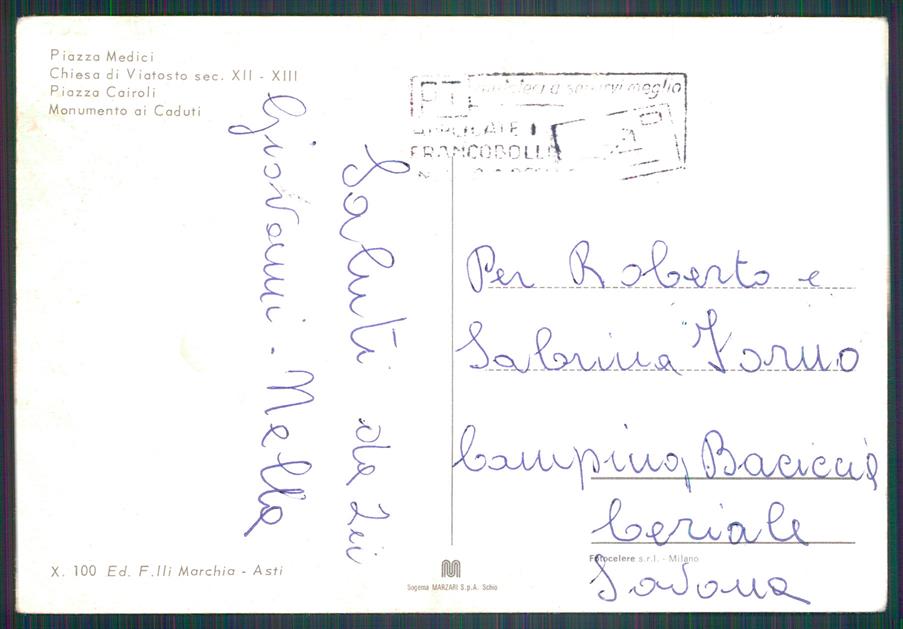 Piazza Medici
Chiesa di Viatosto sec. XII - XIII
Piazza Cairoli
Monumento ai Caduti
Saluti da
Giovanni - Nella
PT aiutateci a servirvi meglio
APPLICATE I
FRANCOBOLLI
Per Roberto e
Sabrina
Camping Baciccia
Ceriale
Savona
X. 100 Ed. F.lli Marchia - Asti
Sogema MARZARI S.p.A. Schio
Fotocelere s.r.l. - Milano